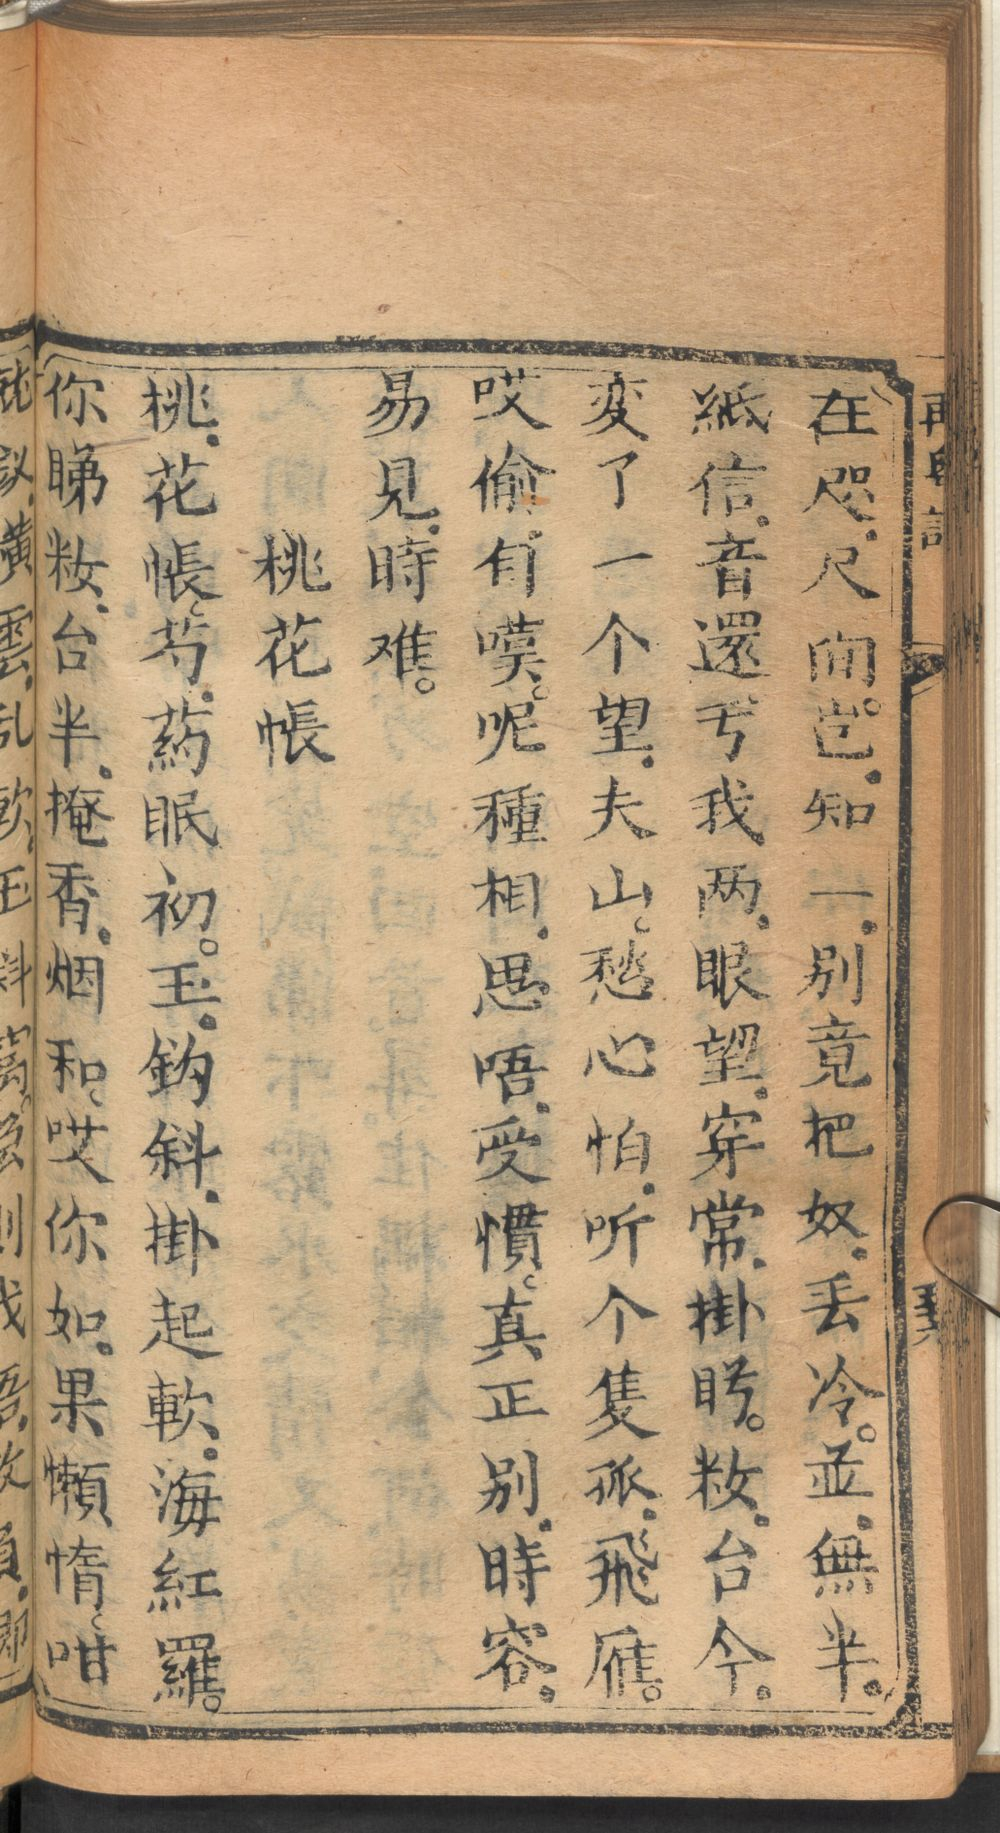 在咫尺間。岂知一别竟把奴丢冷。並無半
紙信音還亏我两眼望穿常掛盻。粧台今
变了一个望夫山、愁心怕听个隻孤飛雁。
哎偷有嘆。呢種相思唔受慣、真正别時容
易見時难。
桃花帳
桃花帳、芍药眠初。玉鈎斜掛起軟海紅羅。
你睇粧台半掩香烟和、哎你如果懶惰、咁